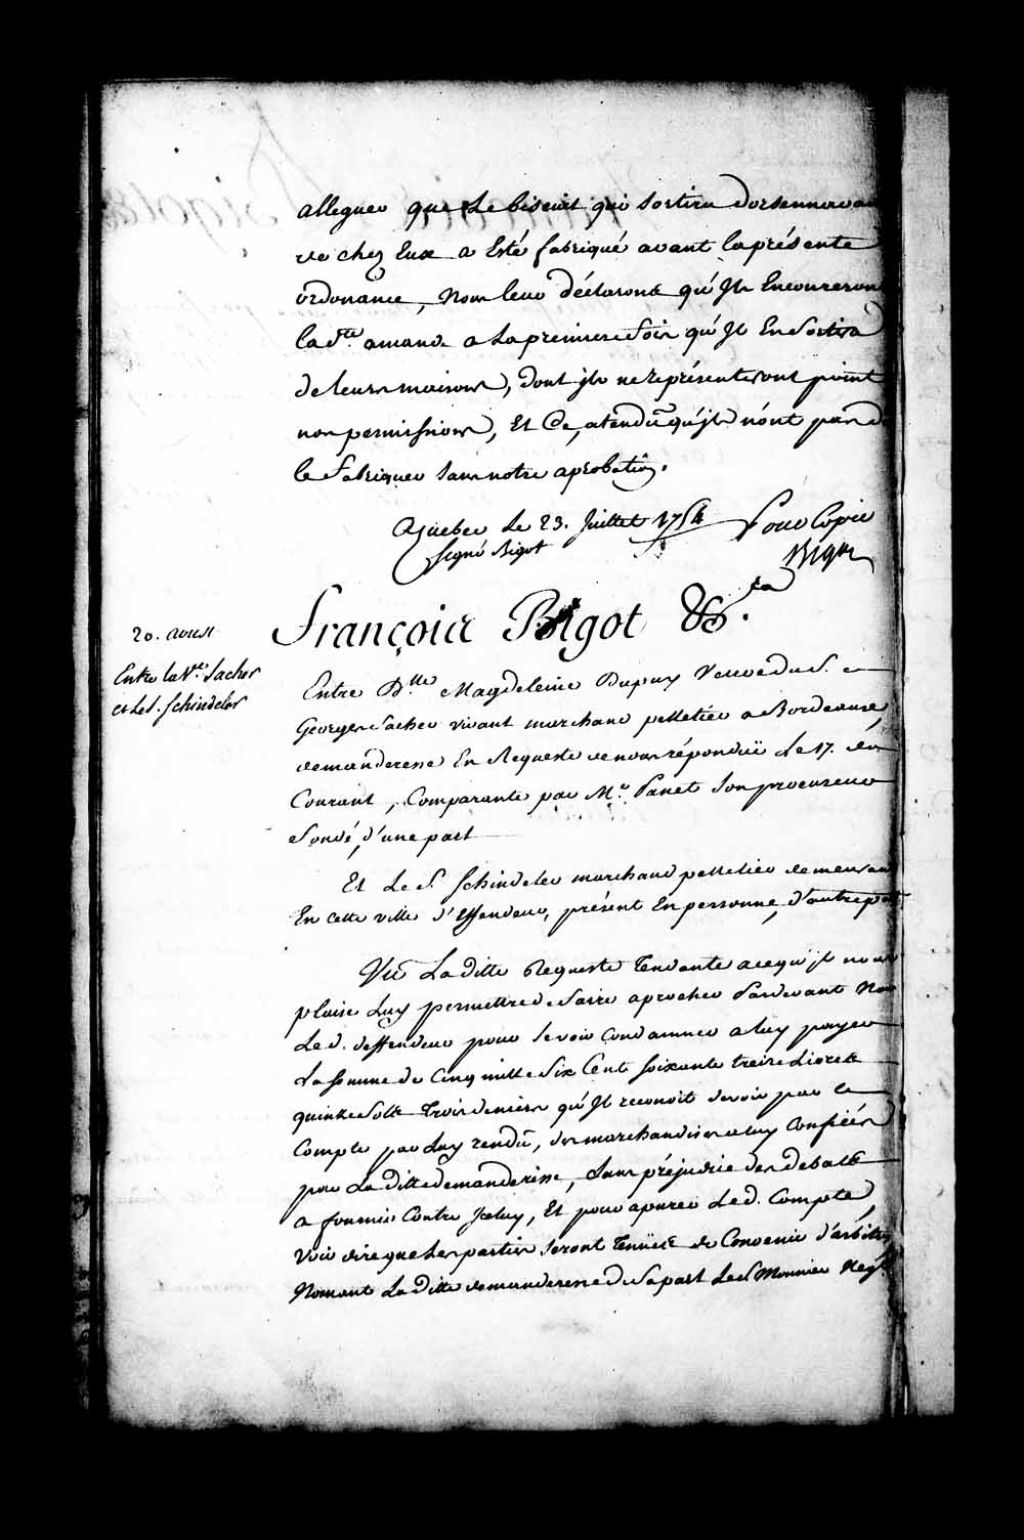 alleguer que Le biscuit qui sortira doresnnavan
de chez Eux a Esté fabriqué avant la présente
ordonance, Nous leur déclarons qu'Jls Encoureron
la d.te amande a la premiere fois qu'Jl En Sortira
de leurs maisons, dont jls ne représenteront point
nos permissions, Et Ce, atendu qu'jls n'ont pas d
le fabriquer sans notre aprobation.
A Quebec le 23. Juillet 1754 Pour Copie
signé Bigot
Bigot
François Bigot &.ca
20. aoust
Entre la V.e Sacher
et le S. Schindeler
Entre D.lle Magdeleine Dupuy Veuve du S.
George Sacher vivant marchand pelletier a Bordeaux,
demanderesse En Requeste de nous répondüe Le 17. du
Courant, Comparante par M.e Panet son procureur
fondé, d'une part
Et Le S. Schindeler marchand pelletier demeurant
En cette ville deffendeur, présent En personne, d'autre part
Vû La ditte Requeste Tendante a ce qu'jl nous
plaise Luy permettre de faire aprocher Pardevant Nous
Le d. deffendeur pour se voir condamner a luy payer
La somme de Cinq mille Six Cent soixante treize Livres
quinze sols Trois deniers qu'Jl reconoit devoir par le
Compte par Luy rendu, des marchandises a luy confiées
par La ditte demanderesse, Sans préjudice des debats
a fournir Contre Jceluy, Et pour apurer Le d. Compte,
Voir dire que Les parties seront Tenües de Convenir d'arbitres,
Nomant La ditte demanderesse de sa part Le S. Monnier Neg.t